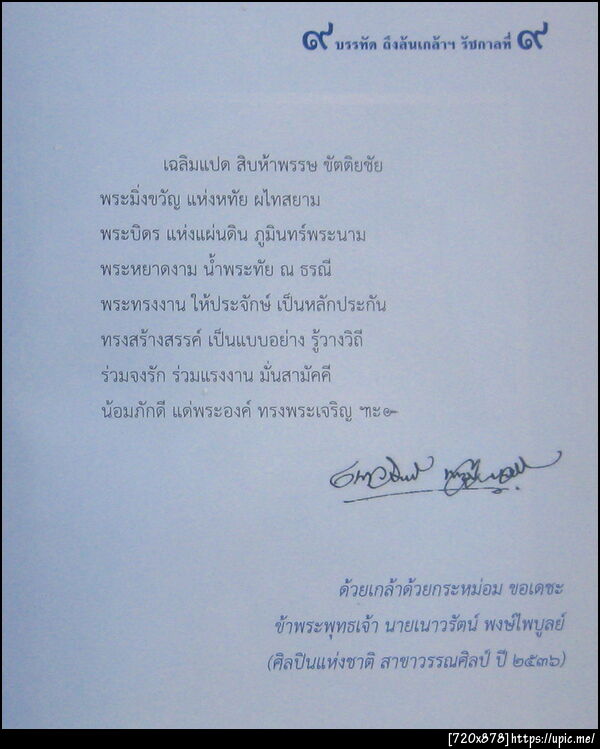 ๙ บรรทัด ถึงล้นเกล้าฯ รัชกาลที่ ๙
เฉลิมแปด สิบห้าพรรษ ขัตติยชัย
พระมิ่งขวัญ แห่งหทัย ผไทสยาม
พระบิดร แห่งแผ่นดิน ภูมินทร์พระนาม
พระหยาดงาม น้ำพระทัย ณ ธรณี
พระทรงงาน ให้ประจักษ์ เป็นหลักประกัน
ทรงสร้างสรรค์ เป็นแบบอย่าง รู้วางวิถี
ร่วมจงรัก ร่วมแรงงาน มั่นสามัคคี
น้อมภักดี แด่พระองค์ ทรงพระเจริญ ฯะ๛
ด้วยเกล้าด้วยกระหม่อม ขอเดชะ
ข้าพระพุทธเจ้า นายเนาวรัตน์ พงษ์ไพบูลย์
(ศิลปินแห่งชาติ สาขาวรรณศิลป์ ปี ๒๕๓๖)
[720x878]https://upic.me/